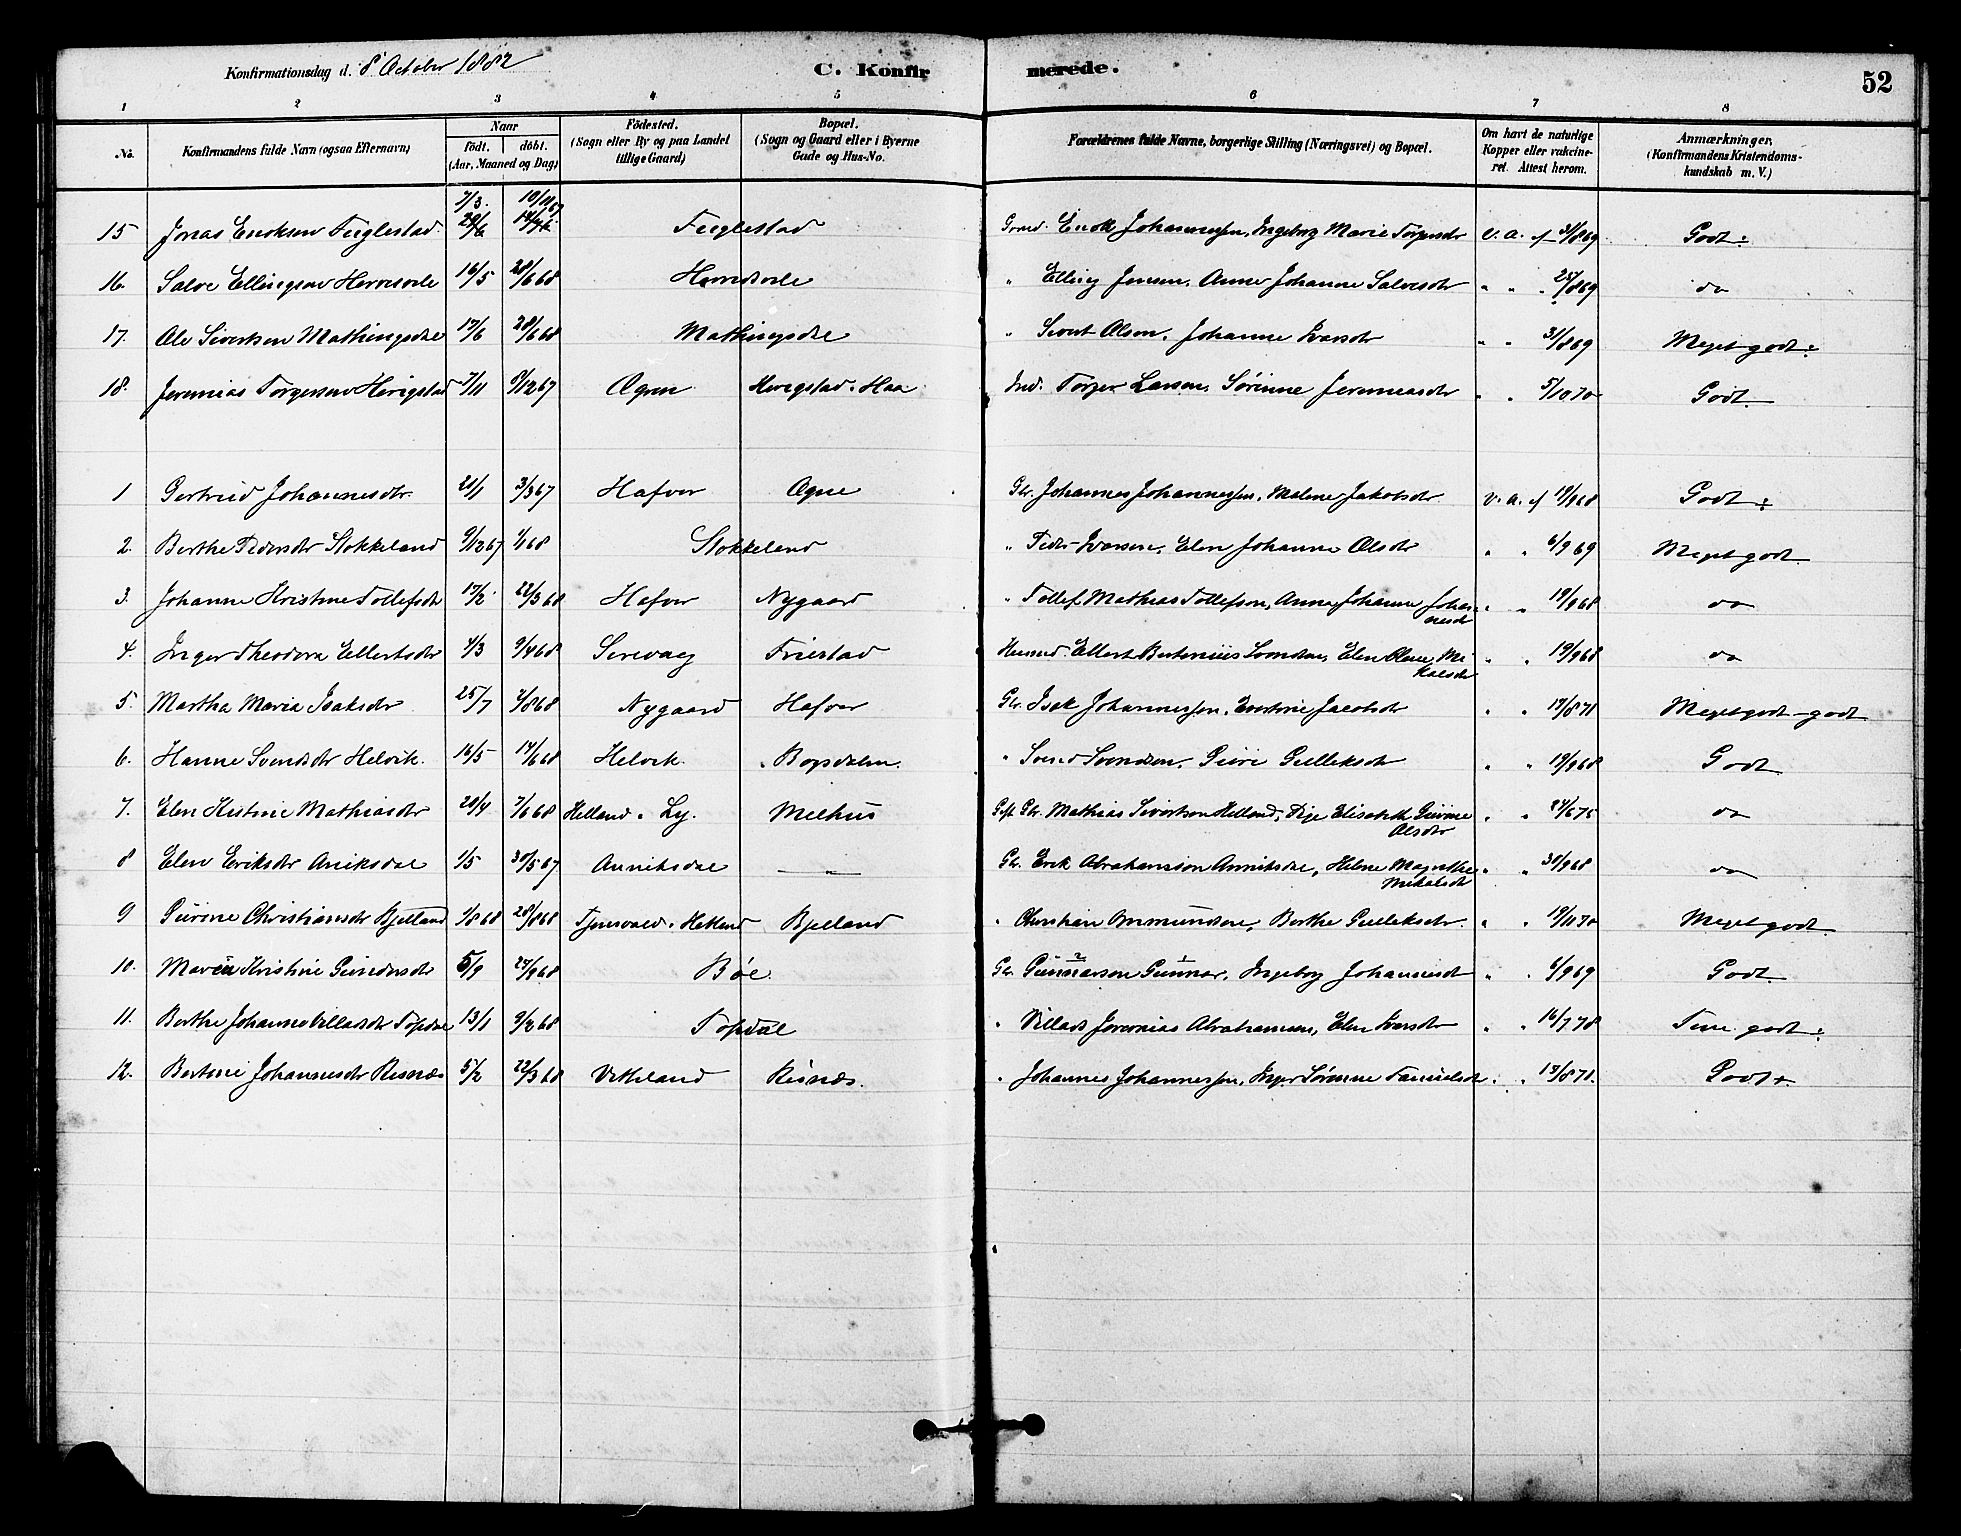 Konfirmationsdag d. 8 October 1882 C. Konfirmerede. 52
1 2 3 4 5 6 7 8
No. Konfirmandens fulde Navn (ogsaa Efternavn) Naar födt. döbt. (Aar, Maaned og Dag) Födested. (Sogn eller By og paa Landet tillige Gaard) Bopæl. (Sogn og Gaard eller i Byerne Gade og Hus-No. Forældrenes fulde Navne, borgerlige Stilling (Næringsvei) og Bopæl. Om havt de naturlige Kopper eller vakcineret. Attest herom. Anmærkninger, (Konfirmandens Kristendomskundskab m. V.)
7/3.
15 Jonas Enoksen Fuglestad Fuglestad Enok Johannessen, Ingeborg Marie Torgersdr v. a. f 31/869 Godt:
16. Salve Ellingsen 16/5 28/668 Elling Jensen, Anne Johanne Salvesdr " " 25/869 do
17. Ole Sivertsen Mathingsdal 17/6 28/668 Mathingsdal " Sivert Olsen, Johanne Ivarsdr " " 31/869 Meget godt:
18. Jeremias Torgersen Herigstad 7/11 9/1267 Ogne Herigstad. Haa Ind. Torger Larsen, Sørinne Jeremeasdr " " 5/1070 Godt.
1 Gertrud Johannesdr. 21/1 3/367 Hafver Ogne Gbr. Johannes Johannessen, Malene Jakobsdr v. a. f 19/968 Godt:
2. Berthe Pedersdr Stokkeland 9/1267 1/168 Stokkeland " Peder Ivarsen, Elen Johanne Olsdr " " 6/969 Meget godt.
3. Johanne Kristine Tollefsdr 17/2 22/368 Hafver Nygaard " Tollef Mathias Tollefsen, Anne Johanne Johannesdr " " 19/968 do
4. Inger Theodora Ellertsdr 4/3 9/468 Sirevaag Friestad Ellert Bertinius Svendsen, Elen Oline Mikalsdr " " 19/968 do
5. Martha Maria Isaksdr 25/7 2/868 Nygaard Hafver Gbr. Isak Johannessen, Evertine Jacobsdr " " 17/871 Meget godt-godt
6. Hanne Svendsdr Helvik. 16/5 14/668 Helvik. Bopsdalen " Svend Svendsen, Guri Gulleksdr " " 19/968 Godt
7. Elen Kistine Mathiasdr 20/4 7/668 Helland. Ly. Melhus Mathias Sivertsen Helland, Pige Elisabeth Gurine Olsdr " " 24/675 do
8 Elen Eriksdr Aniksdal 1/5 30/567 Anniksdal " Gbr. Erik Abrahamson Anniksdal, Helene Magrethe Mikalsdr " " 30/968 do
9 Gurine Christiansdr Bjelland 1/868 28/868 Tjensvold. Hetland Bjelland " Christian Ommundsen, Berthe Gulleksdr. " " 19/1170 Meget godt.
10. Maren Kristine Gunarsdr 5/9 27/968 Bøe. Gbr. Gunnarson Gunnar, Ingeborg Johannesdr " " 6/969 Godt.
11. Berthe Johanne Villadsdr Topdal 13/1 9/268 Topdal " Villads Jeremias Abrahamsen, Elen Iversdr " " 16/778 Temi. godt:
12. Bertine Johannesdr Risnæs 5/2 22/368 Vikeland Risnæs. " Johannes Johannessen, Inger Sørinne Samuelsdr " " 17/871. Godt+